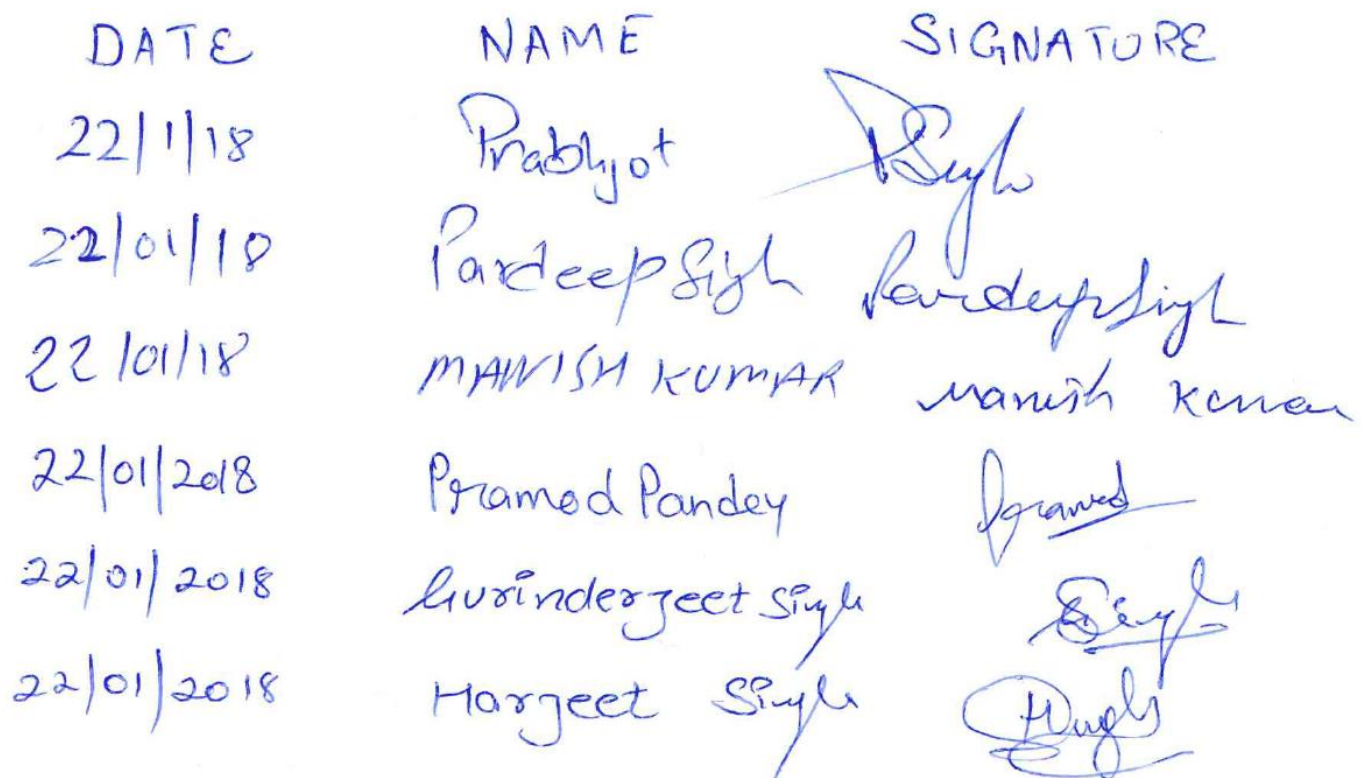 DATE NAME SIGNATURE
22/1/18 Prabhjot PSingh
22/01/18 Pardeep Singh Pardeep Singh
22/01/18 MANISH KUMAR Manish Kumar
22/01/2018 Pramod Pandey Pramod
22/01/2018 Gurinderjeet Singh Singh
22/01/2018 Harjeet Singh HSingh